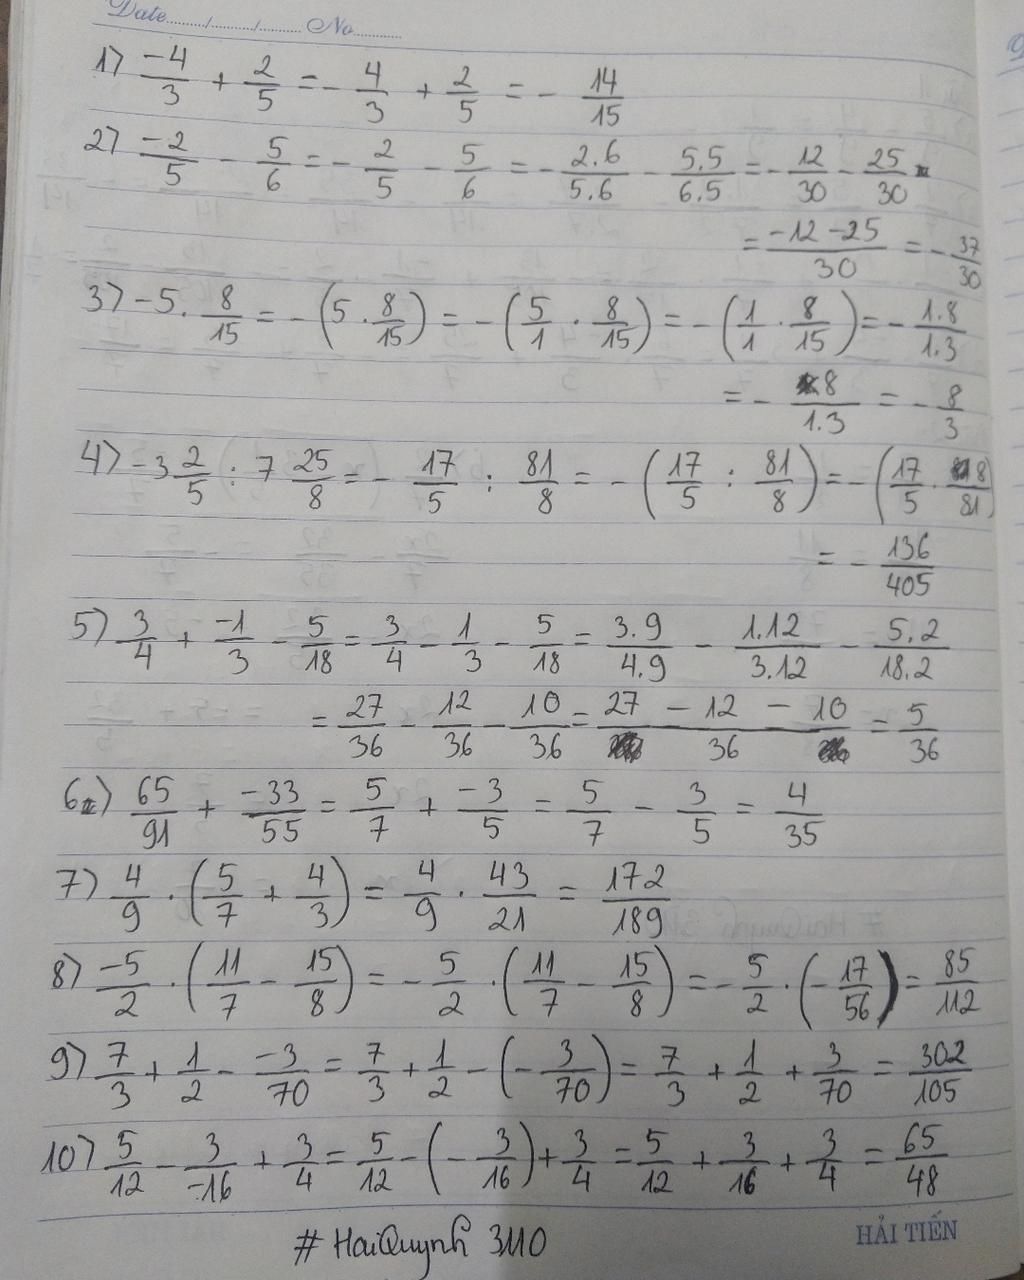 Date......../......../........ No........
1) \frac{-4}{3} + \frac{2}{5} = -\frac{4}{3} + \frac{2}{5} = -\frac{14}{15}
2) \frac{-2}{5} - \frac{5}{6} = -\frac{2}{5} - \frac{5}{6} = -\frac{2.6}{5.6} - \frac{5.5}{6.5} = -\frac{12}{30} - \frac{25}{30}
= \frac{-12-25}{30} = -\frac{37}{30}
3) -5.\frac{8}{15} = -(5.\frac{8}{15}) = -(\frac{5}{1}.\frac{8}{15}) = -(\frac{1}{1}.\frac{8}{15}) = -\frac{1.8}{1.3}
= -\frac{8}{1.3} = -\frac{8}{3}
4) -3\frac{2}{5} : 7\frac{25}{8} = -\frac{17}{5} : \frac{81}{8} = -(\frac{17}{5} : \frac{81}{8}) = -(\frac{17}{5}.\frac{8}{81})
= -\frac{136}{405}
5) \frac{3}{4} + \frac{-1}{3} - \frac{5}{18} = \frac{3}{4} - \frac{1}{3} - \frac{5}{18} = \frac{3.9}{4.9} - \frac{1.12}{3.12} - \frac{5.2}{18.2}
= \frac{27}{36} - \frac{12}{36} - \frac{10}{36} = \frac{27-12-10}{36} = \frac{5}{36}
6) \frac{65}{91} + \frac{-33}{55} = \frac{5}{7} + \frac{-3}{5} = \frac{5}{7} - \frac{3}{5} = \frac{4}{35}
7) \frac{4}{9}.(\frac{5}{7} + \frac{4}{3}) = \frac{4}{9}.\frac{43}{21} = \frac{172}{189}
8) \frac{-5}{2}.(\frac{11}{7} - \frac{15}{8}) = -\frac{5}{2}.(\frac{11}{7} - \frac{15}{8}) = -\frac{5}{2}.(-\frac{17}{56}) = \frac{85}{112}
9) \frac{7}{3} + \frac{1}{2} - \frac{-3}{70} = \frac{7}{3} + \frac{1}{2} - (-\frac{3}{70}) = \frac{7}{3} + \frac{1}{2} + \frac{3}{70} = \frac{302}{105}
10) \frac{5}{12} - \frac{3}{-16} + \frac{3}{4} = \frac{5}{12} - (-\frac{3}{16}) + \frac{3}{4} = \frac{5}{12} + \frac{3}{16} + \frac{3}{4} = \frac{65}{48}
# HaiQuynh 3110
HẢI TIẾN